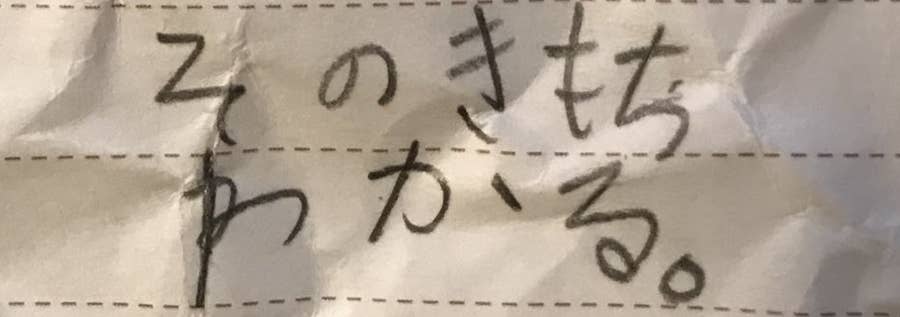 そのきもち
わかる。